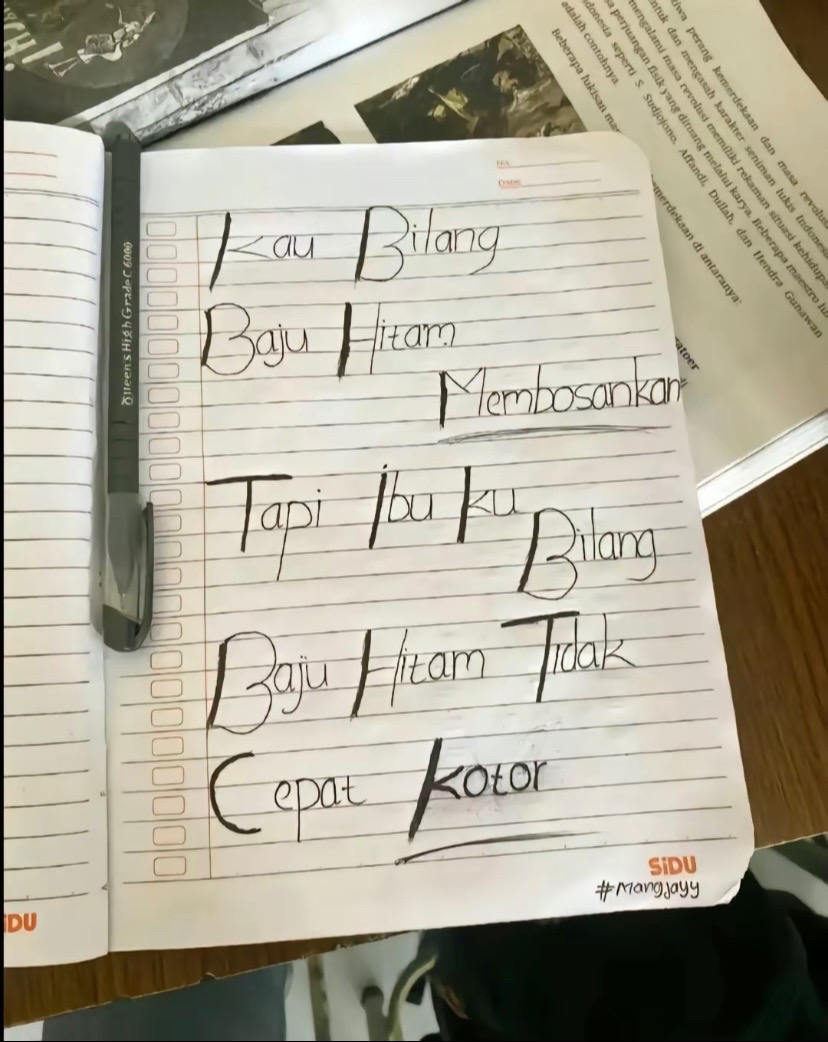 Kau Bilang
Baju Hitam
Membosankan"
Tapi Ibu ku
Bilang
Baju Hitam Tidak
Cepat Kotor
SiDU
#Mangjayy
IDU
No.
Date:
Queen's High Grade C 6000
perang kemerdekaan dan masa
untuk dan mengasah karakter seniman lukis Indonesia
mengalami masa revolusi memiliki rekaman situasi
perjuangan fisik yang dituang melalui karya. Beberapa maestro
seperti S. Sudjojono, Affandi, Dullah, dan Hendra Gunawan
adalah contohnya.
Beberapa lukisan
di antaranya: